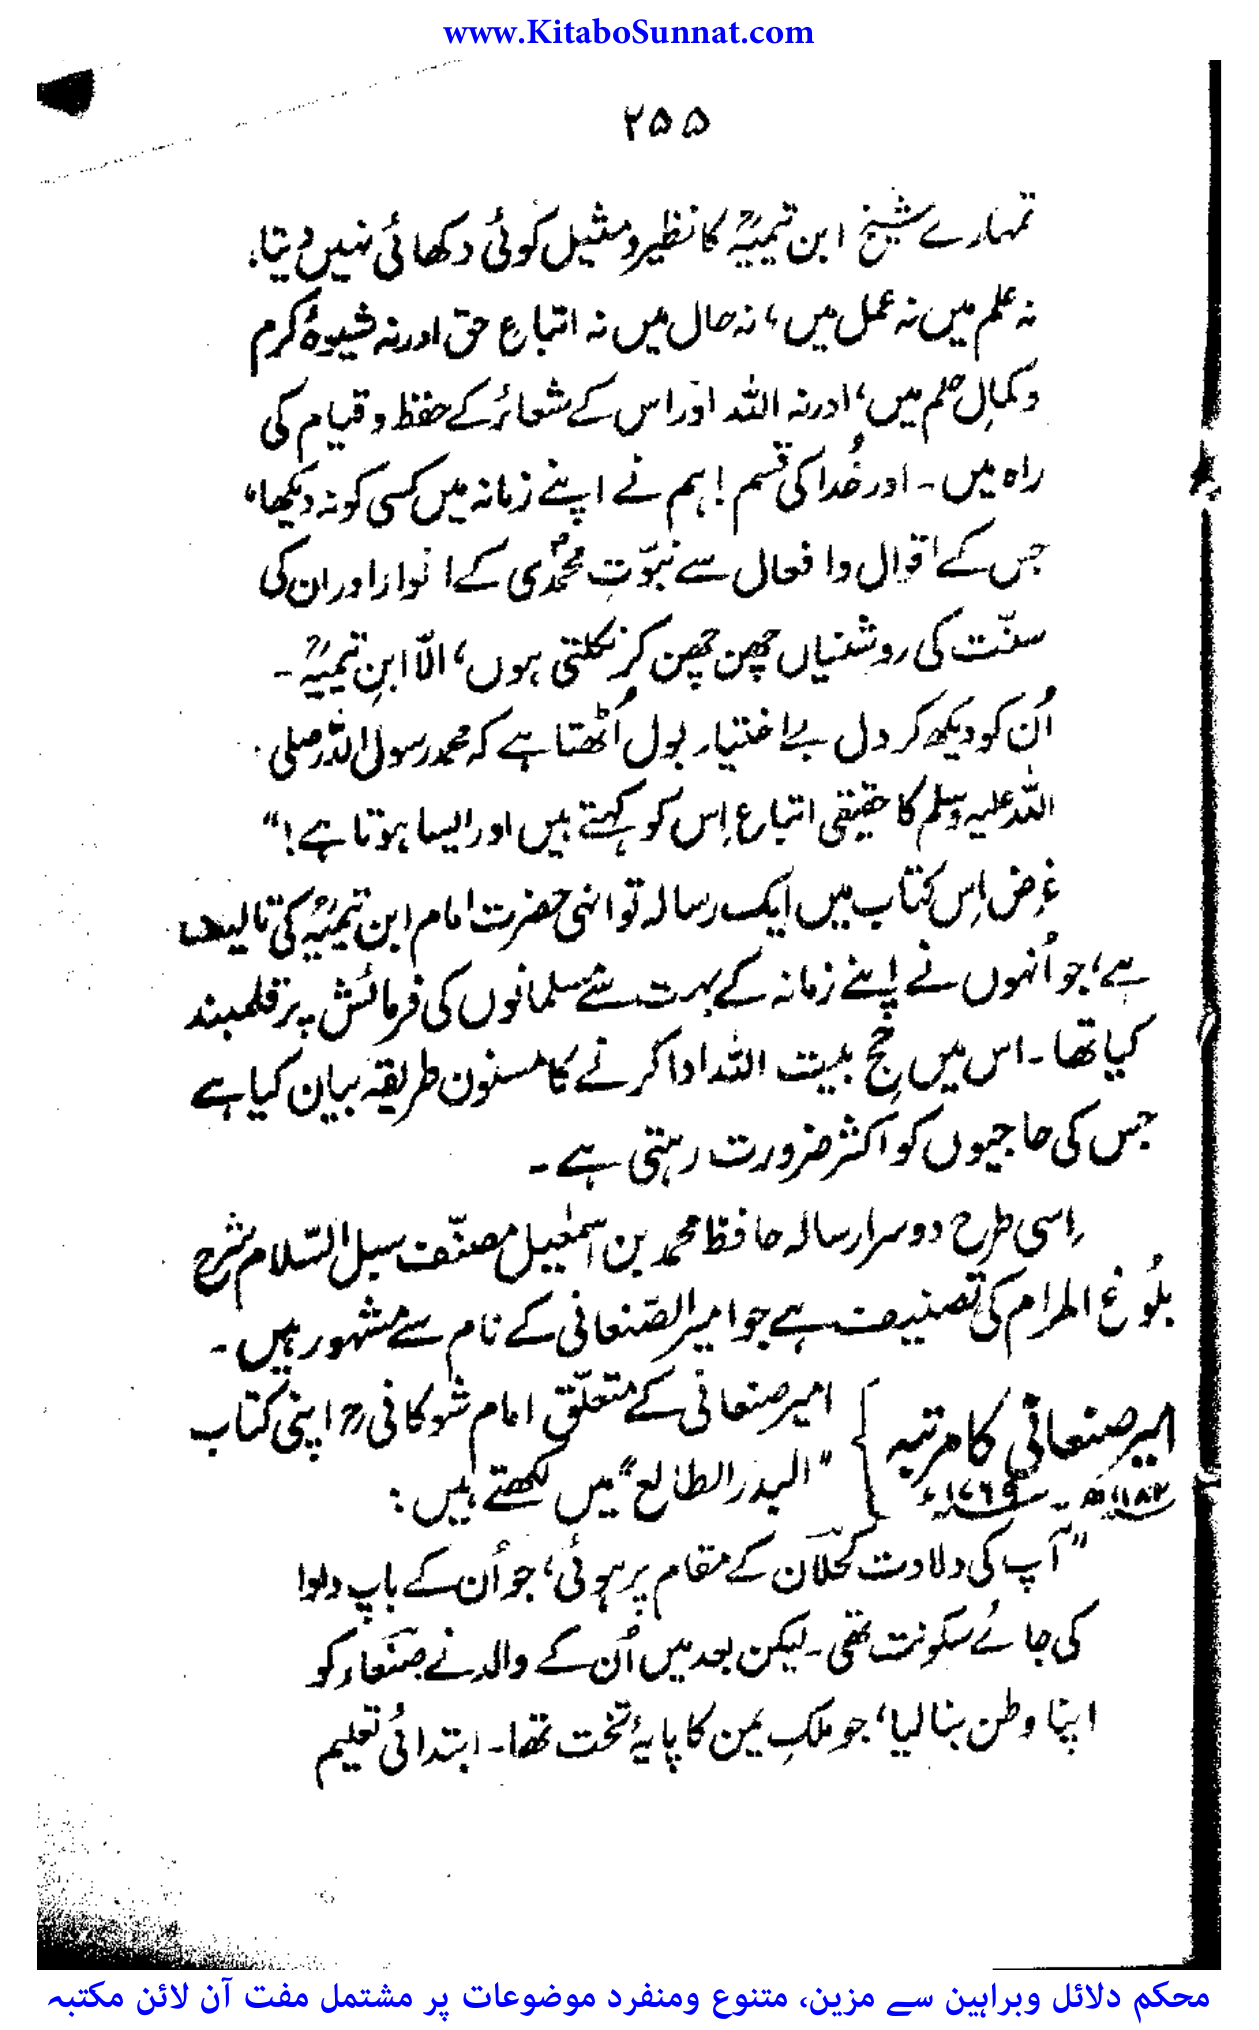 www.KitaboSunnat.com
۲۵۵
تمہارے شیخ ابن تیمیہؒ کا نظیر و مثیل کوئی دکھائی نہیں دیتا،
نہ علم میں نہ عمل میں، نہ حال میں نہ اتباع حق اور نہ شیوۂ کرم
و کمالِ حلم میں، اور نہ اللہ اور اس کے شعائر کے حفظ و قیام کی
راہ میں۔ اور خُدا کی قسم! ہم نے اپنے زمانہ میں کسی کو نہ دیکھا،
جس کے اقوال و افعال سے نبوّتِ محمدؐی کے انوار اور ان کی
سنّت کی روشنیاں چھن چھن کر نکلتی ہوں، الّا ابنِ تیمیہؒ۔
اُن کو دیکھ کر دل بے اختیار بول اُٹھتا ہے کہ محمد رسول اللہ صلی
اللہ علیہ وسلم کا حقیقی اتباع اِس کو کہتے ہیں اور ایسا ہوتا ہے!“
غرض اِس کتاب میں ایک رسالہ تو انہی حضرت امام ابن تیمیہؒ کی تالیف
ہے، جو اُنہوں نے اپنے زمانہ کے بہت سے مسلمانوں کی فرمائش پر قلمبند
کیا تھا۔ اس میں حج بیت اللہ ادا کرنے کا مسنون طریقہ بیان کیا ہے
جس کی حاجیوں کو اکثر ضرورت رہتی ہے۔
اِسی طرح دوسرا رسالہ حافظ محمد بن اسمٰعیل مصنّف سبل السّلام شرح
بلُوغ المرام کی تصنیف ہے جو امیر الصّنعانی کے نام سے مشہور ہیں۔
امیر صنعانی کا مرتبہ } امیر صنعانی کے متعلّق امام شوکانیؒ اپنی کتاب
۱۱۸۲ھ ۔ ۱۷۶۹ء ”البدر الطالع“ میں لکھتے ہیں:
”آپ کی ولادت کحلان کے مقام پر ہوئی، جو اُن کے باپ دادا
کی جائے سکونت تھی۔ لیکن بعد میں اُن کے والد نے صنعاء کو
اپنا وطن بنا لیا، جو ملکِ یمن کا پایۂ تخت تھا۔ ابتدائی تعلیم
محکم دلائل وبراہین سے مزین، متنوع ومنفرد موضوعات پر مشتمل مفت آن لائن مکتبہ